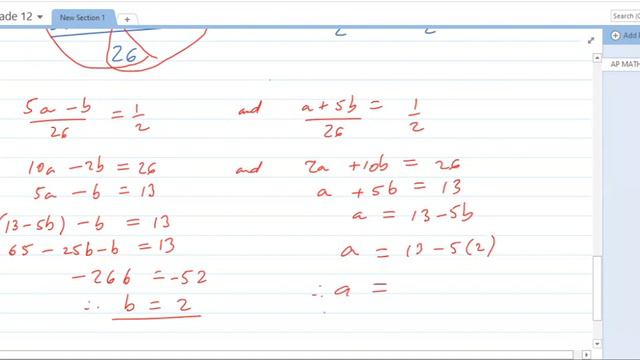 ade 12 New Section 1 Search (C
Add
AP MATH
26 2 2
5a - b / 26 = 1/2 and a + 5b / 26 = 1/2
10a - 2b = 26 and 2a + 10b = 26
5a - b = 13 a + 5b = 13
(13-5b) - b = 13 a = 13 - 5b
65 - 25b - b = 13 a = 13 - 5(2)
-26b = -52
∴ b = 2 ∴ a =